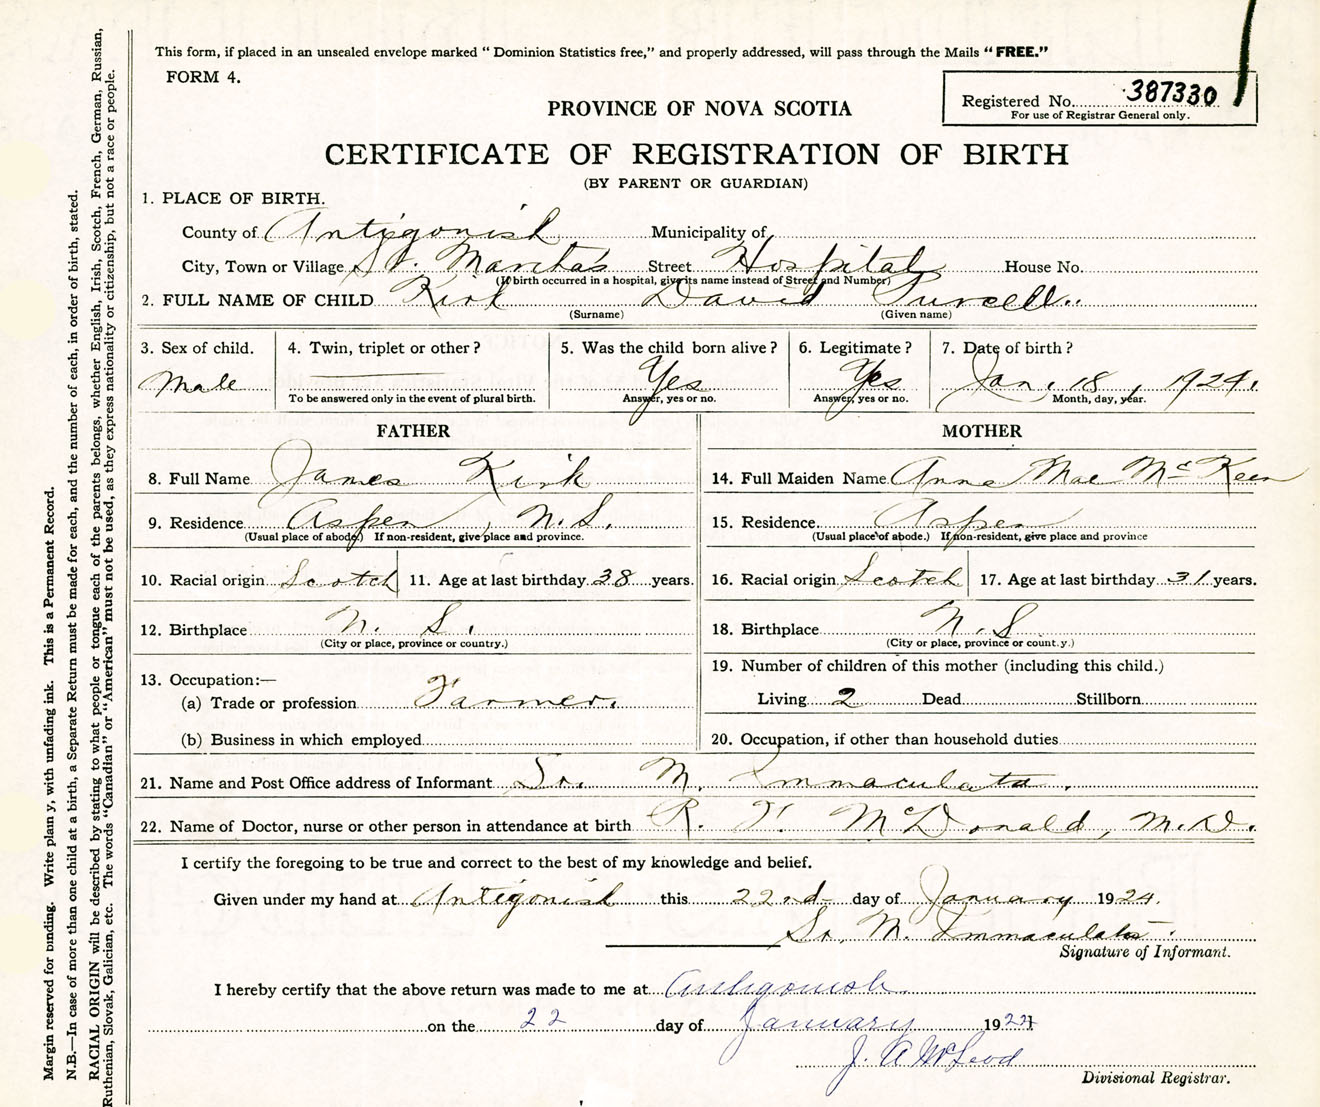 This form, if placed in an unsealed envelope marked “ Dominion Statistics free,” and properly addressed, will pass through the Mails “ FREE.”
FORM 4.
Registered No. 387330
For use of Registrar General only.
PROVINCE OF NOVA SCOTIA
CERTIFICATE OF REGISTRATION OF BIRTH
(BY PARENT OR GUARDIAN)
1. PLACE OF BIRTH.
County of Antigonish Municipality of
City, Town or Village St. Martha's Street Hospital House No.
(If birth occurred in a hospital, give its name instead of Street and Number)
2. FULL NAME OF CHILD Kirk David Purcell.
(Surname) (Given name)
3. Sex of child. 4. Twin, triplet or other? 5. Was the child born alive? 6. Legitimate? 7. Date of birth?
Male Yes Yes Jan. 18, 1924.
To be answered only in the event of plural birth. Answer, yes or no. Answer, yes or no. Month, day, year.
FATHER MOTHER
8. Full Name James Kirk 14. Full Maiden Name Anna Mae McKeen
9. Residence Aspen, N.S. 15. Residence. Aspen
(Usual place of abode.) If non-resident, give place and province. (Usual place of abode.) If non-resident, give place and province
10. Racial origin Scotch 11. Age at last birthday 38 years. 16. Racial origin Scotch 17. Age at last birthday 31 years.
12. Birthplace N. S. 18. Birthplace N. S.
(City or place, province or country.) (City or place, province or count.y.)
19. Number of children of this mother (including this child.)
13. Occupation:—
(a) Trade or profession Farmer. Living 2 Dead Stillborn
(b) Business in which employed 20. Occupation, if other than household duties
21. Name and Post Office address of Informant Sr. M. Immaculata.
22. Name of Doctor, nurse or other person in attendance at birth R. F. McDonald, M.D.
I certify the foregoing to be true and correct to the best of my knowledge and belief.
Given under my hand at Antigonish this 22nd day of January 1924.
Sr. M. Immaculata.
Signature of Informant.
I hereby certify that the above return was made to me at Antigonish
on the 22 day of January 1924
J. A. McLeod
Divisional Registrar.
Margin reserved for binding. Write plain y, with unfading ink. This is a Permanent Record.
N.B.—In case of more than one child at a birth, a Separate Return must be made for each, and the number of each, in order of birth, stated.
RACIAL ORIGIN will be described by stating to what people or tongue each of the parents belongs, whether English, Irish, Scotch, French, German, Russian,
Ruthenian, Slovak, Galician, etc. The words “Canadian” or “American” must not be used, as they express nationality or citizenship, but not a race or people.